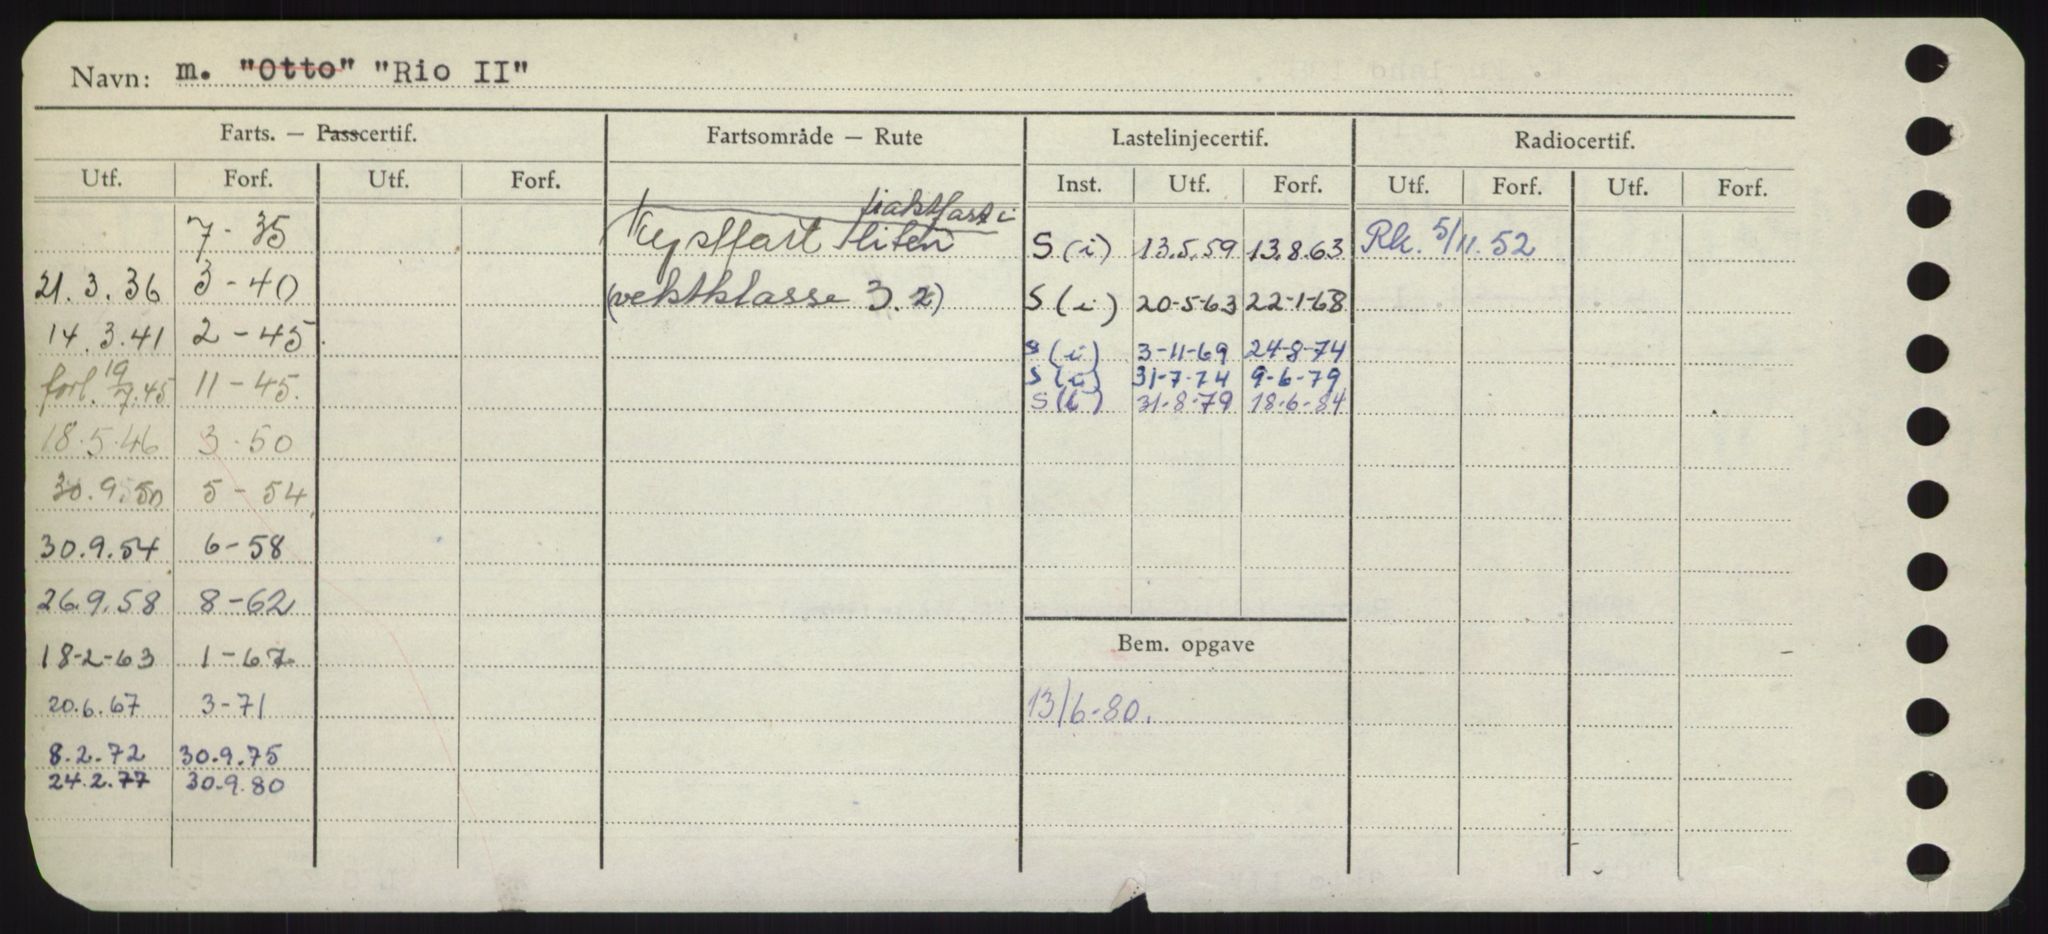 Navn: m. "Otto" "Rio II"
Farts. — Passcertif. Fartsområde — Rute Lastelinjecertif. Radiocertif.
Utf. Forf. Utf. Forf. Inst. Utf. Forf. Utf. Forf. Utf. Forf.
fraktfart i
7 - 35 Kystfart liten S (i) 13.5.59 13.8.63 Rk. 5/11.52
21.3.36 3 - 40 (vektklasse 3.2) S (i) 20-5-63 22-1-68
14.3.41 2 - 45 S (i) 3-11-69 24-8-74
forl. 19/7.45 11 - 45. S (i) 31-7-74 9-6-79
S (i) 31-8-79 18-6-84
18.5.46 3.50
30.9.50 5 - 54
30.9.54 6 - 58
26.9.58 8 - 62
Bem. opgave
18-2-63 1 - 67
20.6.67 3 - 71 13/6-80.
8.2.72 30.9.75
24.2.77 30.9.80